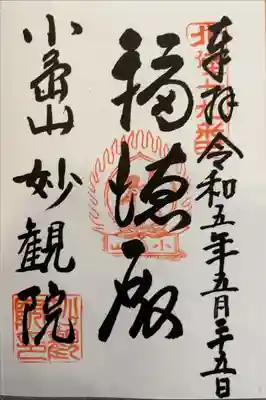 奉拝 令和五年五月二十五日
福徳殿
小嶌山 妙観院